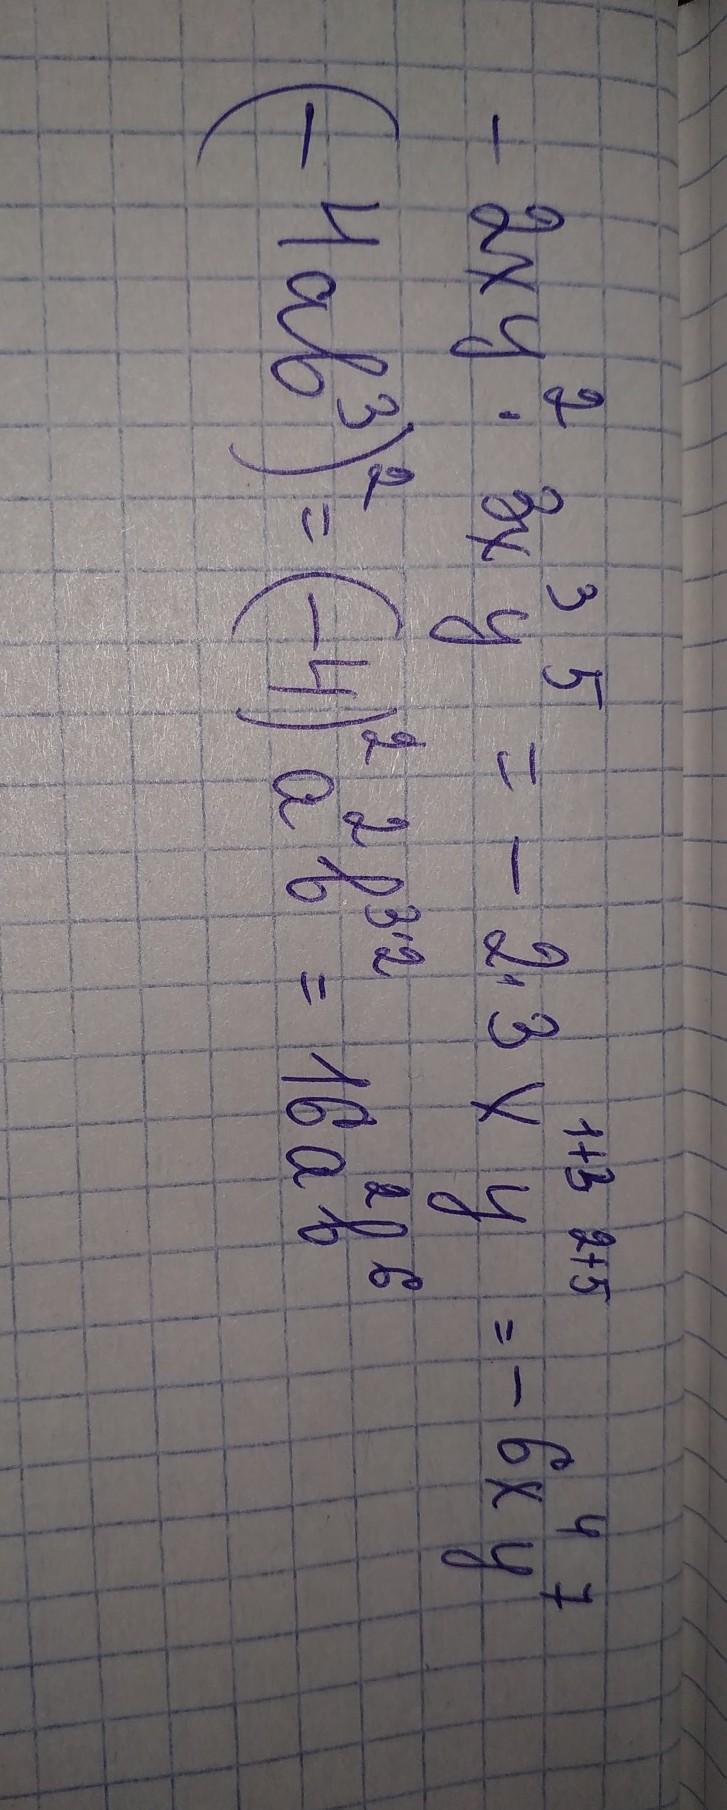 - 2xy² · 3x³y⁵ = - 2·3x¹⁺³y²⁺⁵ = - 6x⁴y⁷
(- 4ab³)² = (- 4)²a²b³·² = 16a²b⁶